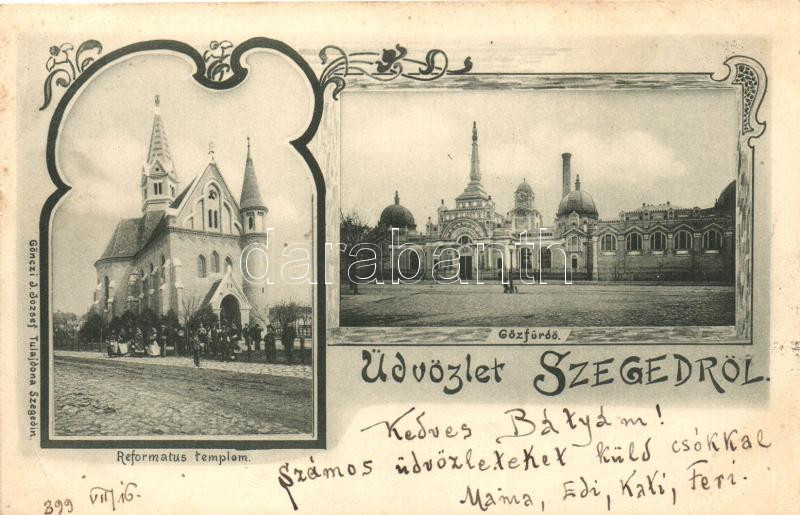 Gőzfürdő.
Üdvözlet SZEGEDRŐL.
Gönczi J. József Tulajdona Szegedin.
Reformatus templom.
darabanth
Kedves Bátyám!
Számos üdvözleteket küld csókkal
Mama, Edi, Kati, Feri.
899 VII/16.